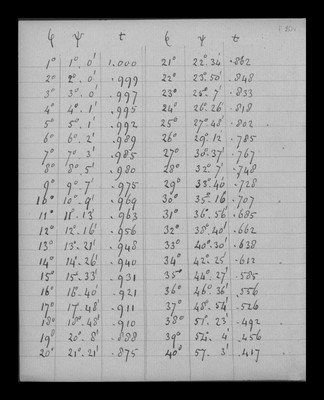 φ ψ t φ ψ t
1° 1°. 0' 1.000 21° 22°.34' .862
20 2°. 0' .999 22° 23°.50' .848
3° 3°. 0' .997 23° 25°. 7' .833
4° 4°. 1' .995 24° 26°.26' .818
5° 5°. 1' .992 25° 27°.48' .802
6° 6°. 2' .989 26° 29°. 12' .785
7° 7°. 3' .985 27° 30°.37' .767
8° 8°. 5' .980 28° 32°. 7' .748
9° 9°. 7' .975 29° 33°.40' .728
10° 10°. 9' .969 30° 35°.16' .707
11° 11°. 13' .963 31° 36°.56' .685
12° 12°.16' .956 32° 38°.40' .662
13° 13°.21' .948 33° 40°.30' .638
14° 14°.26' .940 34° 42°.25' .612
15° 15°.33' .931 35° 44°.27' .585
16° 16°.40' .921 36° 46°.36' .556
17° 17°.48' .911 37° 48°.54' .526
18° 18°.48' .910 38° 51°.23' .492
19° 20°. 8' .888 39° 54°. 4' .456
20° 21°.21' .875 40° 57°. 3' .417